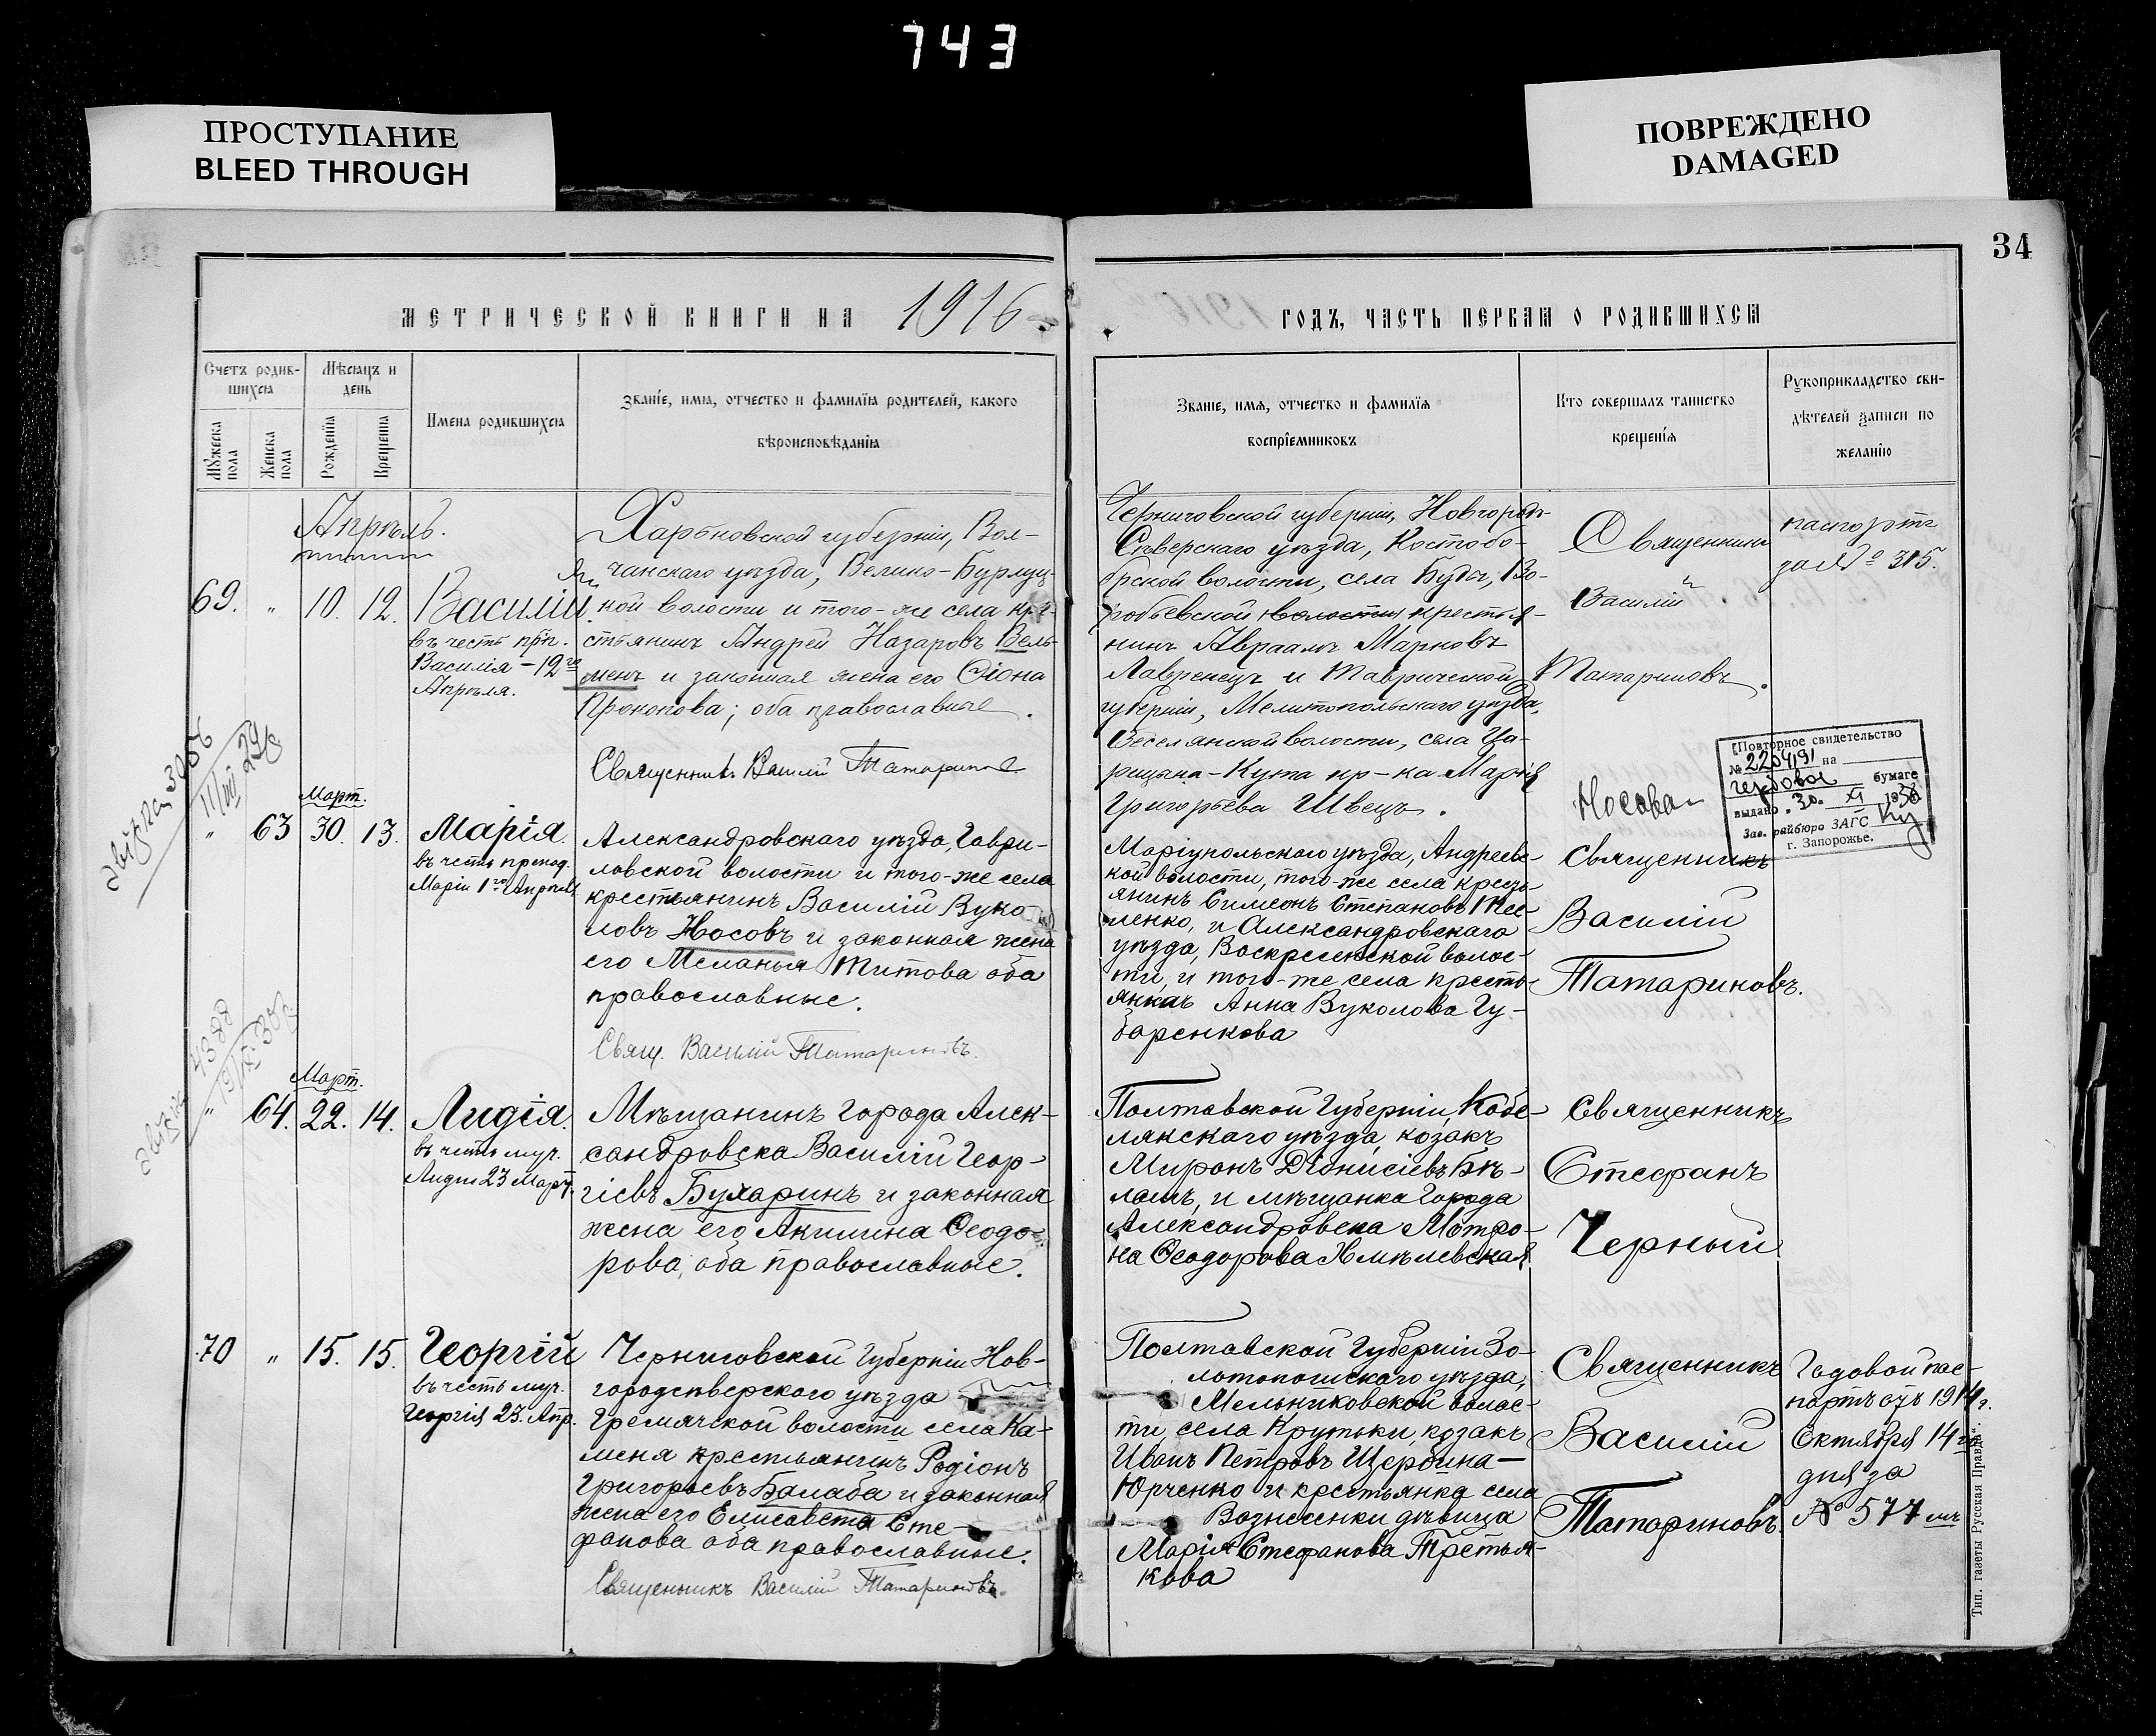 743
ПРОСТУПАНИЕ
BLEED THROUGH
ПОВРЕЖДЕНО
DAMAGED
34
МЕТРИЧЕСКОЙ КНИГИ НА 1916
ГОДЪ, ЧАСТЬ ПЕРВАЯ О РОДИВШИХСЯ
Счетъ родив-
шихся
Мужеска
пола
Женска
пола
Мѣсяцъ и
день
Рожденія
Крещенія
Имена родившихся
Званіе, имя, отчество и фамилія родителей, какого
вѣроисповѣданія
Званіе, имя, отчество и фамилія
воспріемниковъ
Кто совершалъ таинство
крещенія
Рукоприкладство сви-
дѣтелей записи по
желанію
Апрѣль.
69. " 10. 12. Василій
въ честь прп.
Василія - 12го
Апрѣля.
Харьковской губерніи, Вол-
чанскаго уѣзда, Велико-Бурлуц-
кой волости и того-же села кре-
стьянинъ Андрей Назаровъ Вель-
менъ и законная жена его Ѳіона
Прокопова; оба православные.
Священникъ Василій Татариновъ
Черниговской губерніи, Новгородъ-
Сѣверскаго уѣзда, Костобо-
брской волости, села Буды, Во-
робьевской волости крестья-
нинъ Авраамъ Марковъ
Лавренецъ и Таврической
губерніи, Мелитопольскаго уѣзда,
Веселянской волости, села Ца-
рицына-Кута кр-ка Марія
Григорьева Швецъ.
Священникъ
Василій
Татариновъ.
паспортъ
за № 315.
Март.
" 63 30. 13. Марія
въ честь препод.
Маріи 1го Апрѣля
Александровскаго уѣзда, Гаври-
ловской волости и того-же села
крестьянинъ Василій Вуко-
ловъ Носовъ и законная жена
его Меланья Титова оба
православные.
Свящ. Василій Татариновъ.
Маріупольскаго уѣзда, Андреевс-
кой волости, того-же села кресть-
янинъ Симеонъ Степановъ Тес-
ленко, и Александровскаго
уѣзда, Воскресенской волос-
ти, и того-же села кресть-
янка Анна Вуколова Гу-
баренкова
Носова
Священникъ
Василій
Татариновъ.
Повторное свидетельство
№ 2204191 на
гербовой бумаге
выдано 30. XI 1938
Зав. райбюро ЗАГС
г. Запорожье.
Март.
" 64. 22. 14. Лидія.
въ честь муч.
Лидіи 23 Март.
Мѣщанинъ города Алек-
сандровска Василій Геор-
гіевъ Бухаринъ и законная
жена его Акилина Ѳеодо-
рова, оба православные.
Полтавской Губерніи, Кобе-
лякскаго уѣзда, козакъ
Миронъ Діонисіевъ Бѣ-
лашъ, и мѣщанка города
Александровска Матро-
на Ѳеодорова Хмѣлевская
Священникъ
Стефанъ
Черный
70 " 15. 15. Георгій
въ честь муч.
Георгія 23. Апр.
Черниговской Губерніи Нов-
городсѣверскаго уѣзда
Гремячской волости села Ка-
меня крестьянинъ Родіонъ
Григорьевъ Балаба и законная
жена его Елисавета Сте-
фанова оба православные.
Священникъ Василій Татариновъ.
Полтавской Губерніи Зо-
лотоношскаго уѣзда,
Мельниковской волос-
ти, села Крутьки, козакъ
Иванъ Петровъ Щербина-
Юрченко и крестьянка села
Вознесенки дѣвица
Марія Стефанова Третья-
кова
Священникъ
Василій
Татариновъ.
Годовой пас-
портъ отъ 1914 г.
Октября 14го
дня за
№ 577 мъ
Тип. газеты Русская Правда".